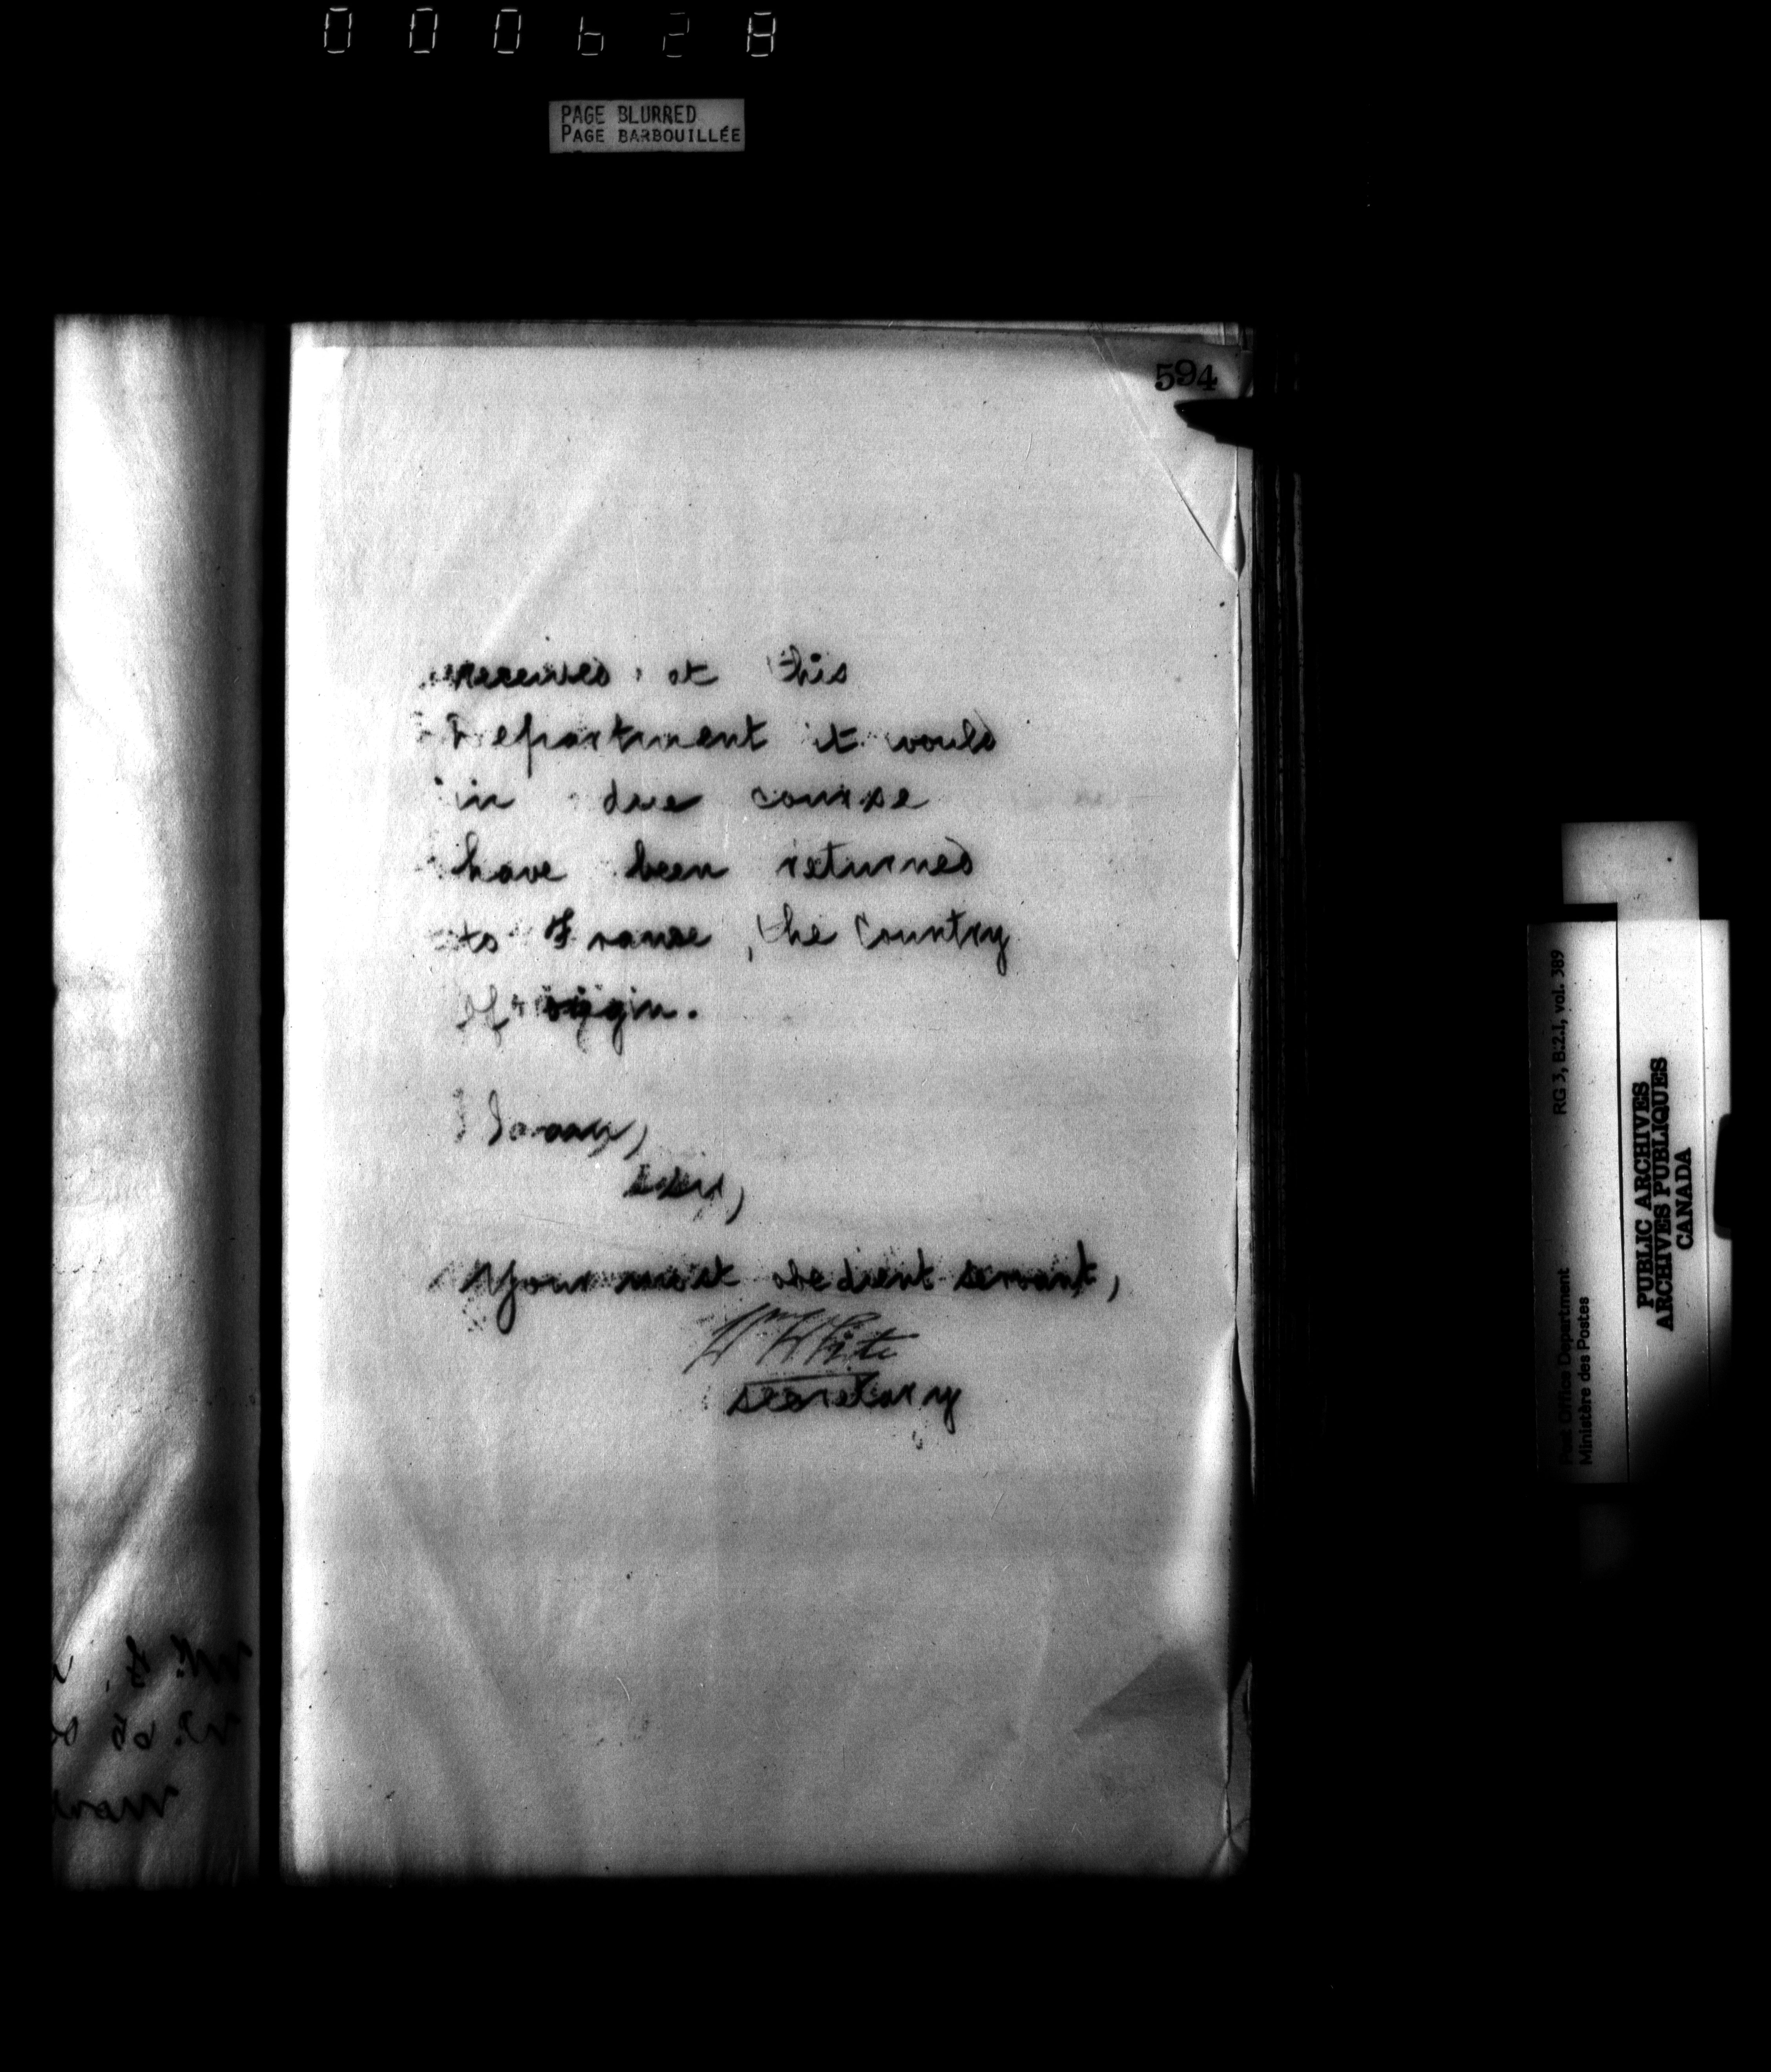 000628
PAGE BLURRED
PAGE BARBOUILLÉE
594
received at this
Department it would
in due course
have been returned
to France, the Country
of origin.
I am,
Sir,
Your most obedient servant,
Wm White
Secretary
RG 3, B.2.1, vol. 389
Post Office Department
Ministère des Postes
PUBLIC ARCHIVES
ARCHIVES PUBLIQUES
CANADA